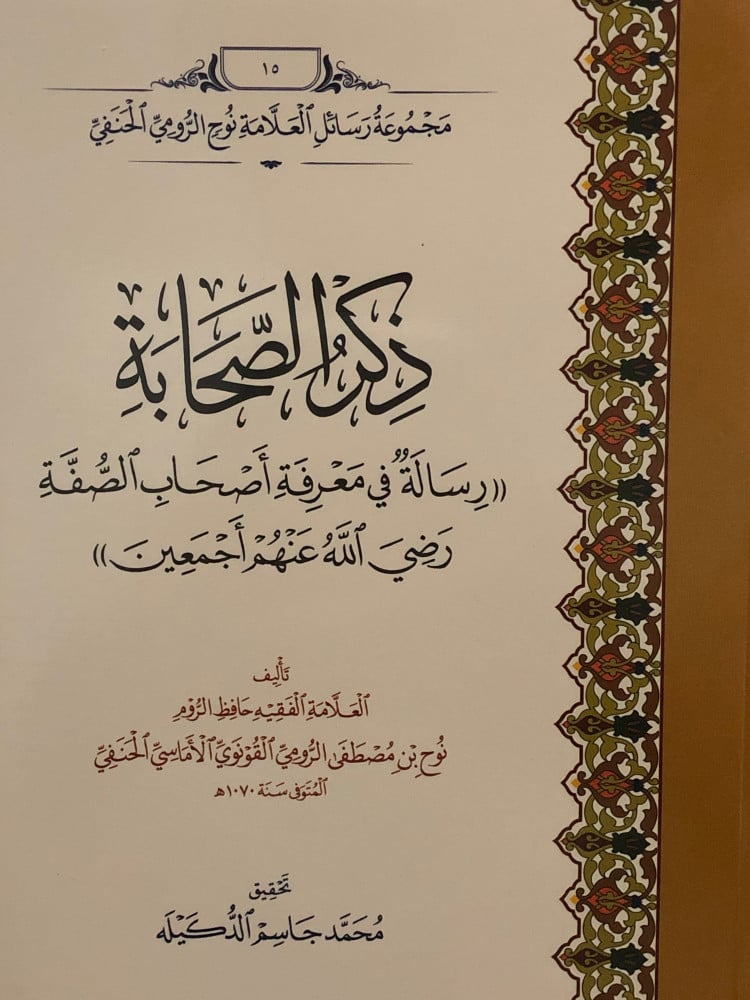 ١٥
مَجْمُوعَةُ رَسَائِلِ ٱلْعَلَّامَةِ نُوحٍ الرُّومِيِّ ٱلْحَنَفِيِّ
ذِكْرُ الصَّحَابَةِ
((رِسَالَةٌ فِي مَعْرِفَةِ أَصْحَابِ ٱلصُّفَّةِ
رَضِيَ ٱللَّهُ عَنْهُمْ أَجْمَعِينَ))
تَأْلِيف
ٱلْعَلَّامَةِ ٱلْفَقِيهِ حَافِظِ الرُّومِ
نُوحِ بْنِ مُصْطَفَى الرُّومِيِّ ٱلْقُونَوِيِّ ٱلْأَمَاسِيِّ ٱلْحَنَفِيِّ
ٱلْمُتَوَفَّى سَنَةَ ١٠٧٠هـ
تَحْقِيق
مُحَمَّد جَاسِم ٱلدُّكَيْلَه